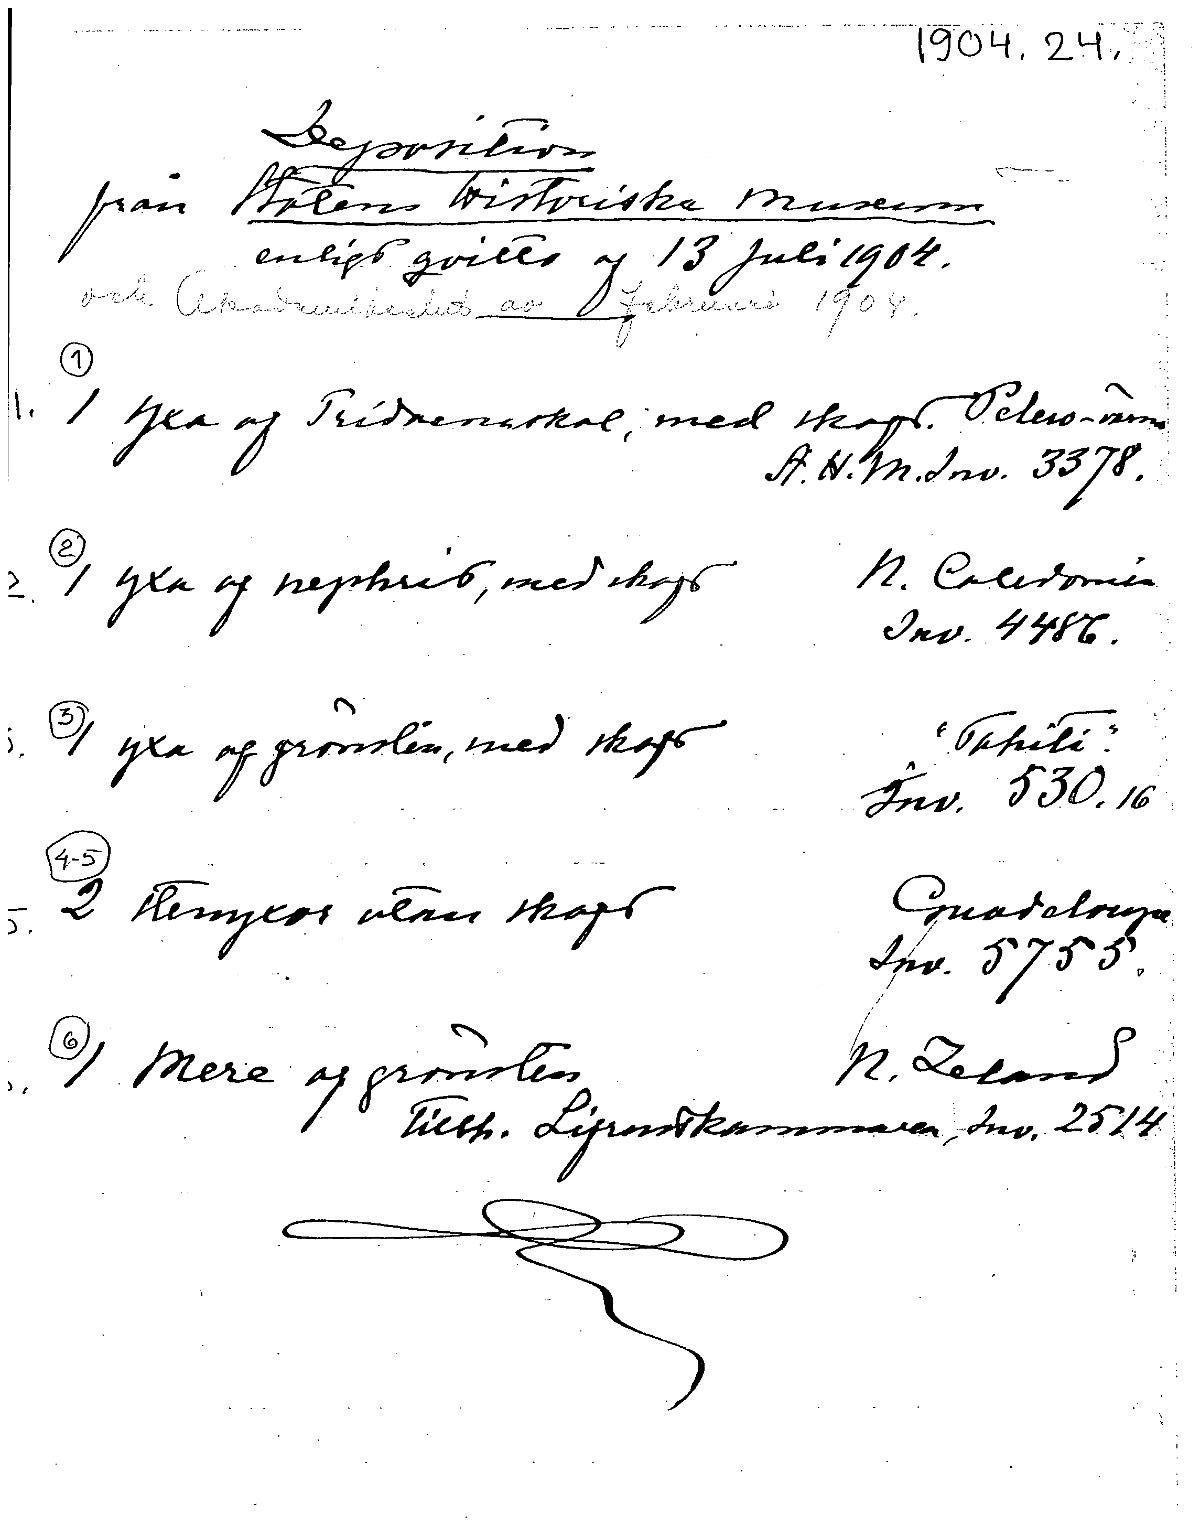 1904. 24.
Deposition
från Statens Historiska Museum
enligt qvitto af 13 Juli 1904.
och Akademibeslut av februari 1904.
①
1. 1 yxa af Tridacnaskal, med skaft. Pelew-öarna
S. H. M. Inv. 3378.
②
2. 1 yxa af nephrit, med skaft N. Caledonien
Inv. 4486.
③
3. 1 yxa af grönsten, med skaft "Tahiti".
Inv. 530.16
④-⑤
5. 2 stenyxor utan skaft Guadeloupe
Inv. 5755.
⑥
6. 1 Mere af grönsten N. Zeland
Tillh. Lifrustkammaren, Inv. 2514